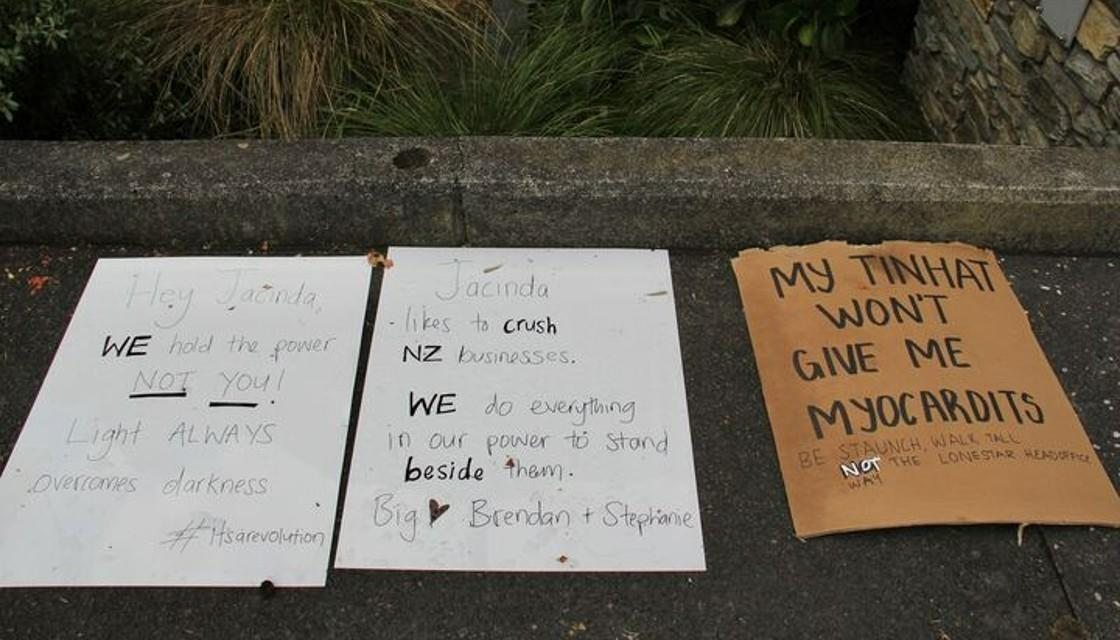 Hey Jacinda,
WE hold the power
NOT YOU!
Light ALWAYS
overcomes darkness
#itsarevolution
Jacinda
likes to crush
NZ businesses.
WE do everything
in our power to stand
beside them.
Big ♥ Brendan + Stephanie
MY TINHAT
WON'T
GIVE ME
MYOCARDITS
BE STAUNCH, WALK TALL
NOT THE LONESTAR HEADOFFICE
WAY